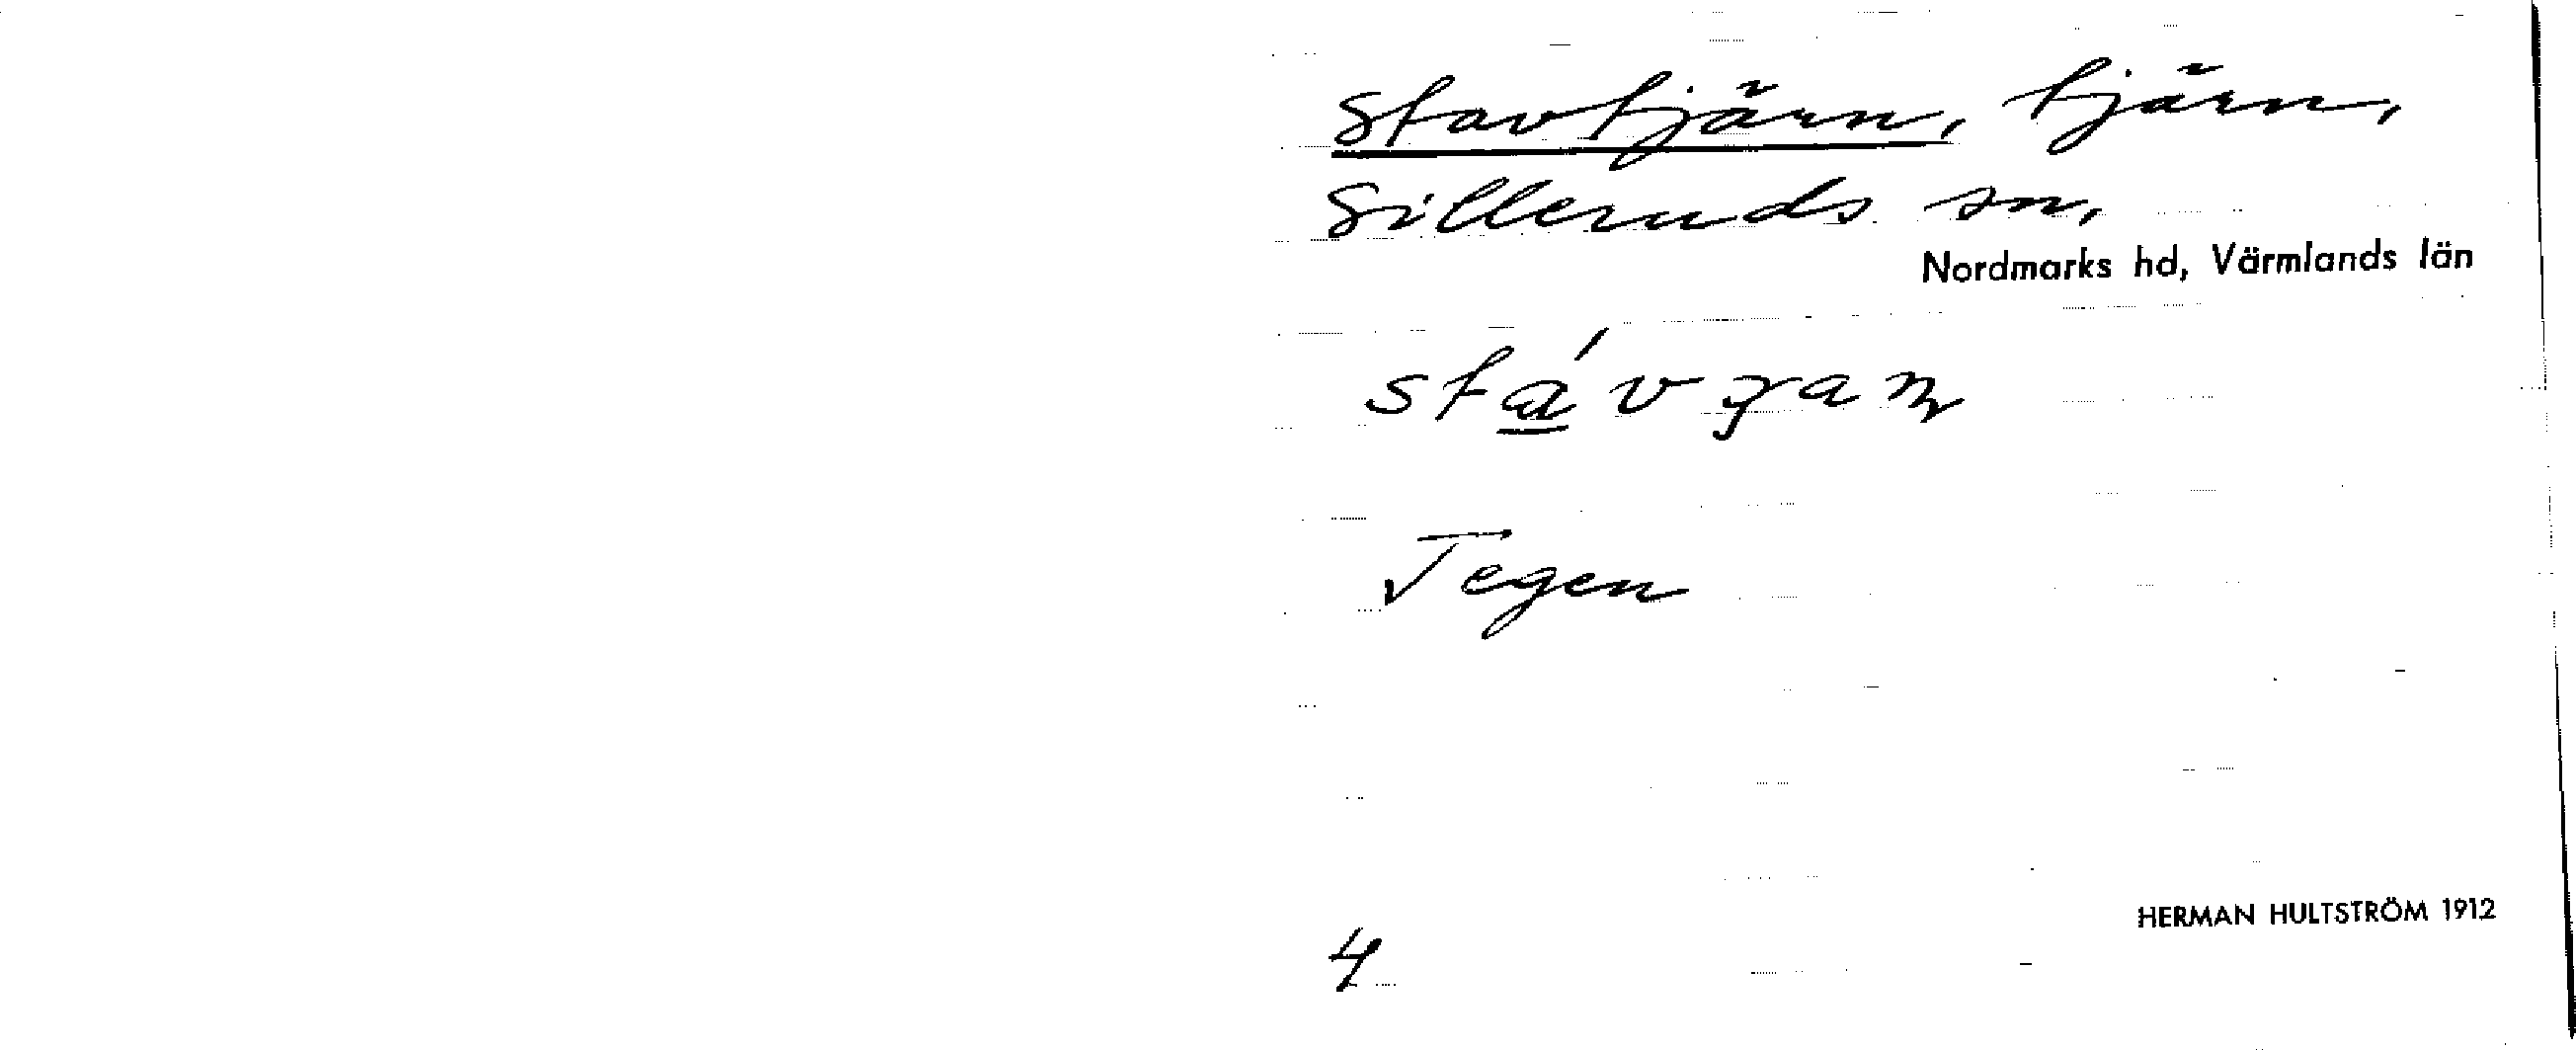 Stavtjärn, tjärn,
Silleruds sn,
Nordmarks hd, Värmlands län
Tegen
HERMAN HULTSTRÖM 1912
4